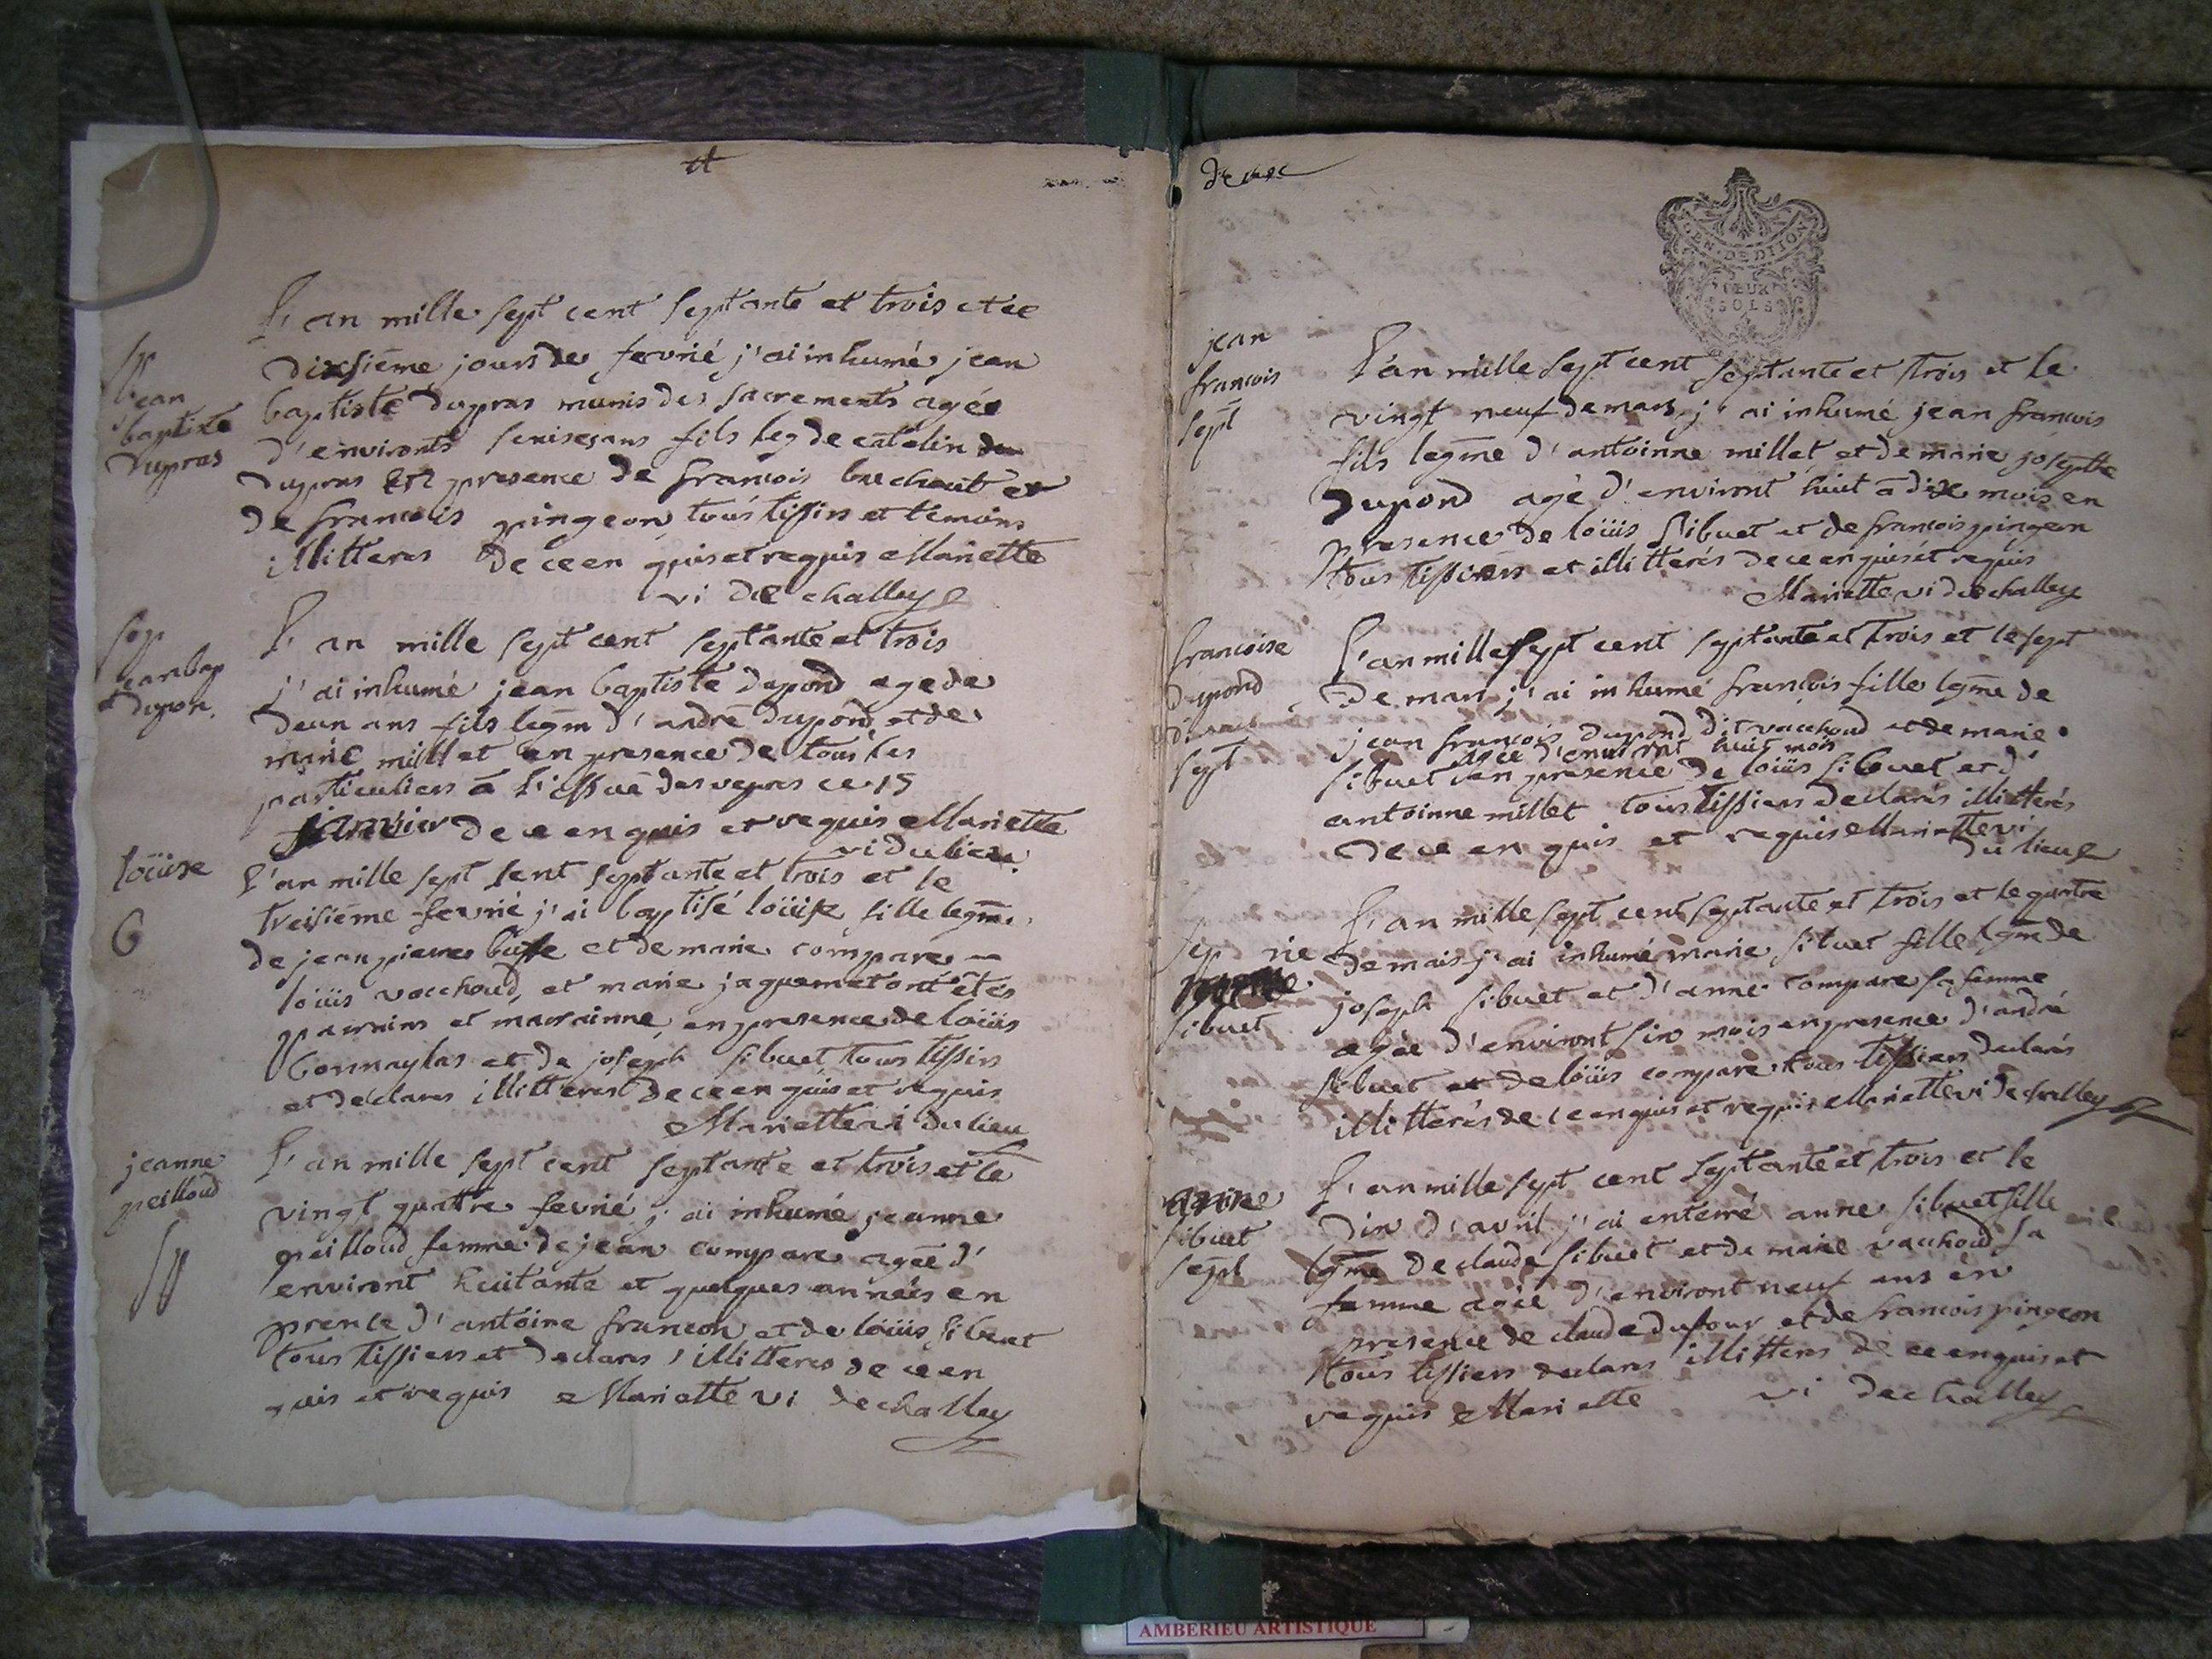 L'an mille sept cent septante et trois et le
dixsiéme jours de fevrié j'ai inhumé jean
jean
baptiste
dupras
baptiste dupras munis des sacrements agée
d'environts ans fils leg de catelin
dupras en presence de francois buchaut et
de francois pingeon tous tissiers et temoins
illitteres de ce en quis et requis Mariette
vi de challey
sep
jeanbap
dupon
L'an mille sept cent septante et trois
j'ai inhumé jean baptiste dupond age de
deun ans fils legm d'andré dupond et de
marie millet en presence de tous les
particuliers a l'issuë des vepres ce 15
janvier de ce en quis et requis Mariette
vi du lieu
loüise
6
L'an mille sept sent septante et trois et le
treisiéme fevrié j'ai baptisé loüise fille legme
de jean pierre et de marie compare
loüis vacchoud, et marie jaquemet ont étés
parrains et marrainne en presence de loüis
bonnaylas et de joseph sibuet tous tissirs
et declares illitteres de ce en quis et requis
Mariette vi du lieu
jeanne
peilloud
sp
L'an mille sept cent septante et trois et le
vingt quattre fevrié j'ai inhumé jeanne
peilloud femme de jean compare agée d'
environt huitante et quelques annéés en
prence d'antoine francon et de loüis sibuet
tous tissiers et declares illitteres de ce en
quis et requis Mariette vi de challey
deuxe
GEN. DE DIJON
DEUX
SOLS
jean
francois
sept
L'an mille sept cent septante et trois et le
vingt neuf de mars j'ai inhumé jean francois
fils legme d'antoinne millet et de marie josephte
dupond agé d'environt huit a dixe mois en
presence de loüis sibuet et de francois pingeon
tous tissiers et illitterés de ce en quis ét requis
Mariette vi de challey
francoise
dupond
sept
L'an mille sept cent septante et trois et le sept
de mars j'ai inhumé francois fille legme de
jean francois dupond dit vacchoud et de marie
agee d'environt huit mois
sibuet en presence de loüis sibuet et d'
antoinne millet tous tissiers declarés illitterés
de ce en quis et requis Mariette vi
du lieu
sep rie
sibuet
L'an mille sept cent septante et trois et le quatre
de mais j'ai inhumé marie sibuet fille lgme de
joseph sibuet et d'anne compare sa femme
agée d'environt six mois en presence d'andré
sibuet et de loüis compare tous tissiers declarés
illitterés de ce en quis et requis Mariette vi de challey
anne
sibuet
sept
L'an mille sept cent septante et trois et le
dix d'avril j'ai enterré anne sibuet fille
lgme de claude sibuet et de marie vacchoud sa
femme agée d'environt neuf ans en
presence de claude dufour et de francois pingeon
tous tissiers declares illitteres de ce en quis et
requis Mariette vi de challey
AMBERIEU ARTISTIQUE